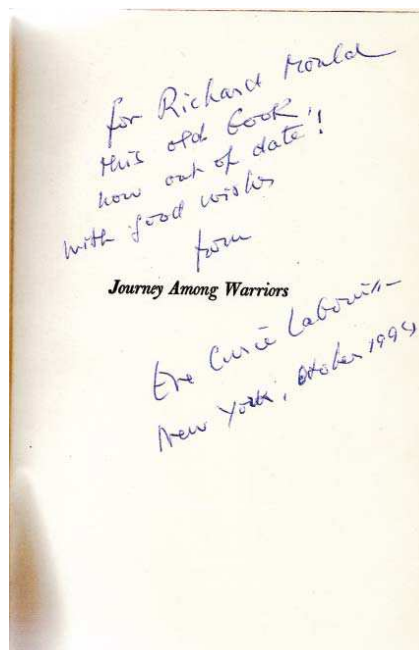 for Richard Mould
this old book,
now out of date!
with good wishes
from
Journey Among Warriors
Eve Curie Labouisse
New York, October 1994